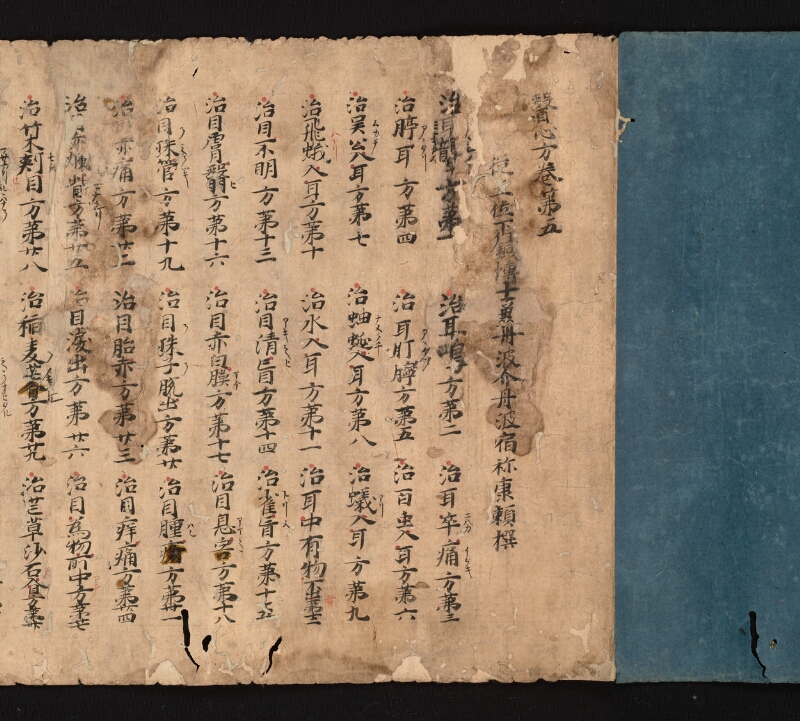 醫心方卷第五
從五位下行鍼博士兼丹波介丹波宿祢康頼撰
治耳聾方第一 治耳鳴方第二 治耳卒痛方第三
治聤耳方第四 治耳耵聹方第五 治百虫入耳方第六
治吴蚣入耳方第七 治蚰蜒入耳方第八 治蟻入耳方第九
治飛蛾入耳方第十 治水入耳方第十一 治耳中有物不出第十二
治目不明方第十三 治目清盲方第十四 治雀盲方第十五
治目膚翳方第十六 治目赤白膜方第十七 治目息宍方第十八
治目珠管方第十九 治目珠子脱出方第廿 治目腫痛方第廿一
治目赤痛方第廿二 治目胎赤方第廿三 治目痒痛方第廿四
治目赤爛眥方第廿五 治目淚出方第廿六 治目為物所中方第廿七
治竹木刺目方第廿八 治稲麦芒入目方第廿九 治芒草沙石入目方第卅